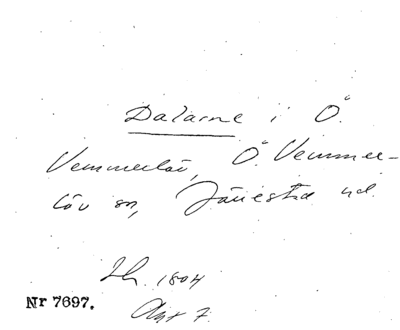 Dalarne i Ö.
Vemmerlöv, Ö. Vemmer-
löv sn, Järrestad hd.
Lh. 1804
Akt 7
Nr 7697.